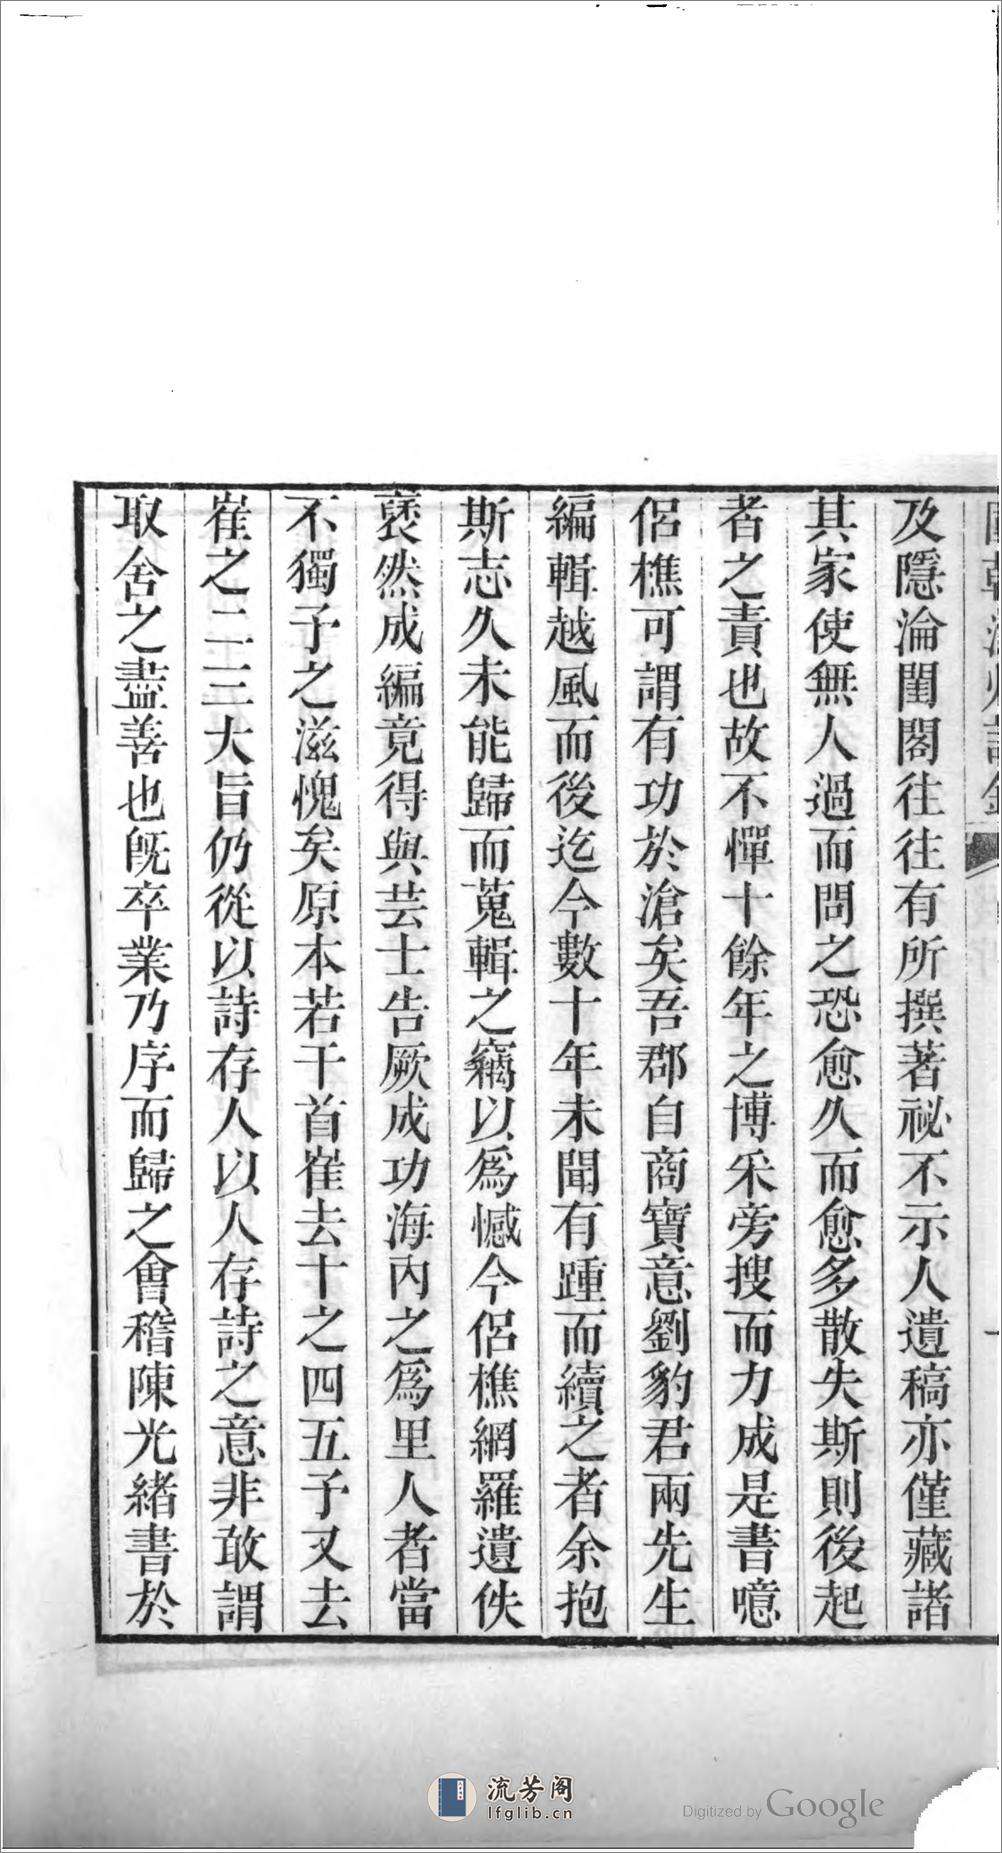 國朝滄州詩鈔
一
及隱淪閨閣往往有所撰著祕不示人遺稿亦僅藏諸
其家使無人過而問之恐愈久而愈多散失斯則後起
者之責也故不憚十餘年之博采旁搜而力成是書噫
侶樵可謂有功於滄矣吾郡自商寶意劉豹君兩先生
編輯越風而後迄今數十年未聞有踵而續之者余抱
斯志久未能歸而蒐輯之竊以爲憾今侶樵網羅遺佚
裒然成編竟得與芸士告厥成功海內之爲里人者當
不獨予之滋愧矣原本若干首崔去十之四五予又去
崔之二三大旨仍從以詩存人以人存詩之意非敢謂
取舍之盡善也旣卒業乃序而歸之會稽陳光緒書於
流芳阁
lfglib.cn
Digitized by Google